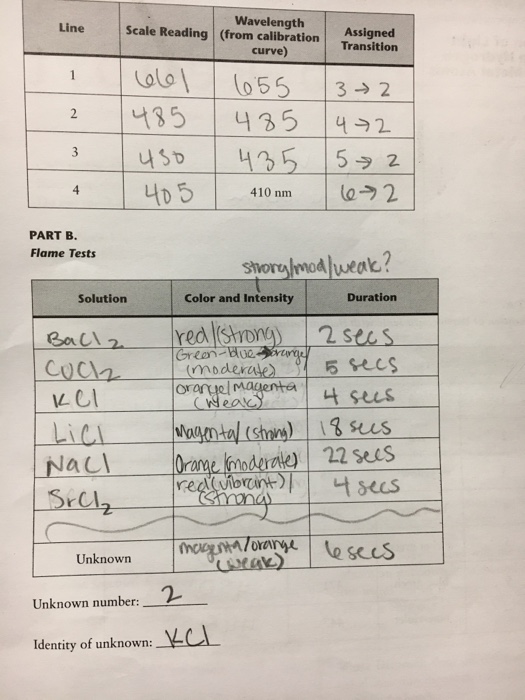 Line Scale Reading Wavelength (from calibration curve) Assigned Transition
1 661 655 3 → 2
2 485 485 4 → 2
3 430 435 5 → 2
4 405 410 nm 6 → 2
PART B.
Flame Tests
strong/mod/weak?
Solution Color and Intensity Duration
BaCl2 red/(strong) 2 secs
CuCl2 Green-blue → orange/ (moderate) 5 secs
KCl orange/magenta (weak) 4 secs
LiCl Magenta/(strong) 18 secs
NaCl Orange/(moderate) 22 secs
SrCl2 red(vibrant)/ (strong) 4 secs
Unknown magenta/orange (weak) 6 secs
Unknown number: 2
Identity of unknown: KCl